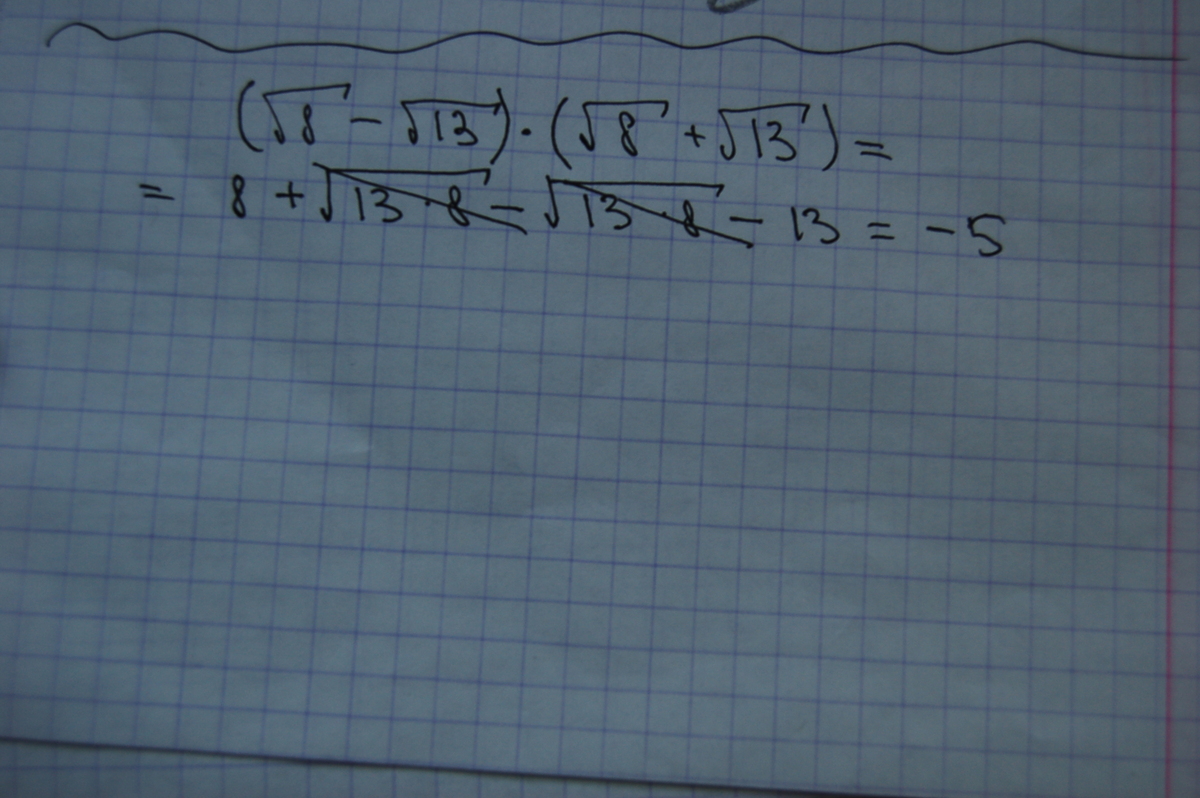 (√8 - √13) · (√8 + √13) =
= 8 + √13 · 8 - √13 · 8 - 13 = -5